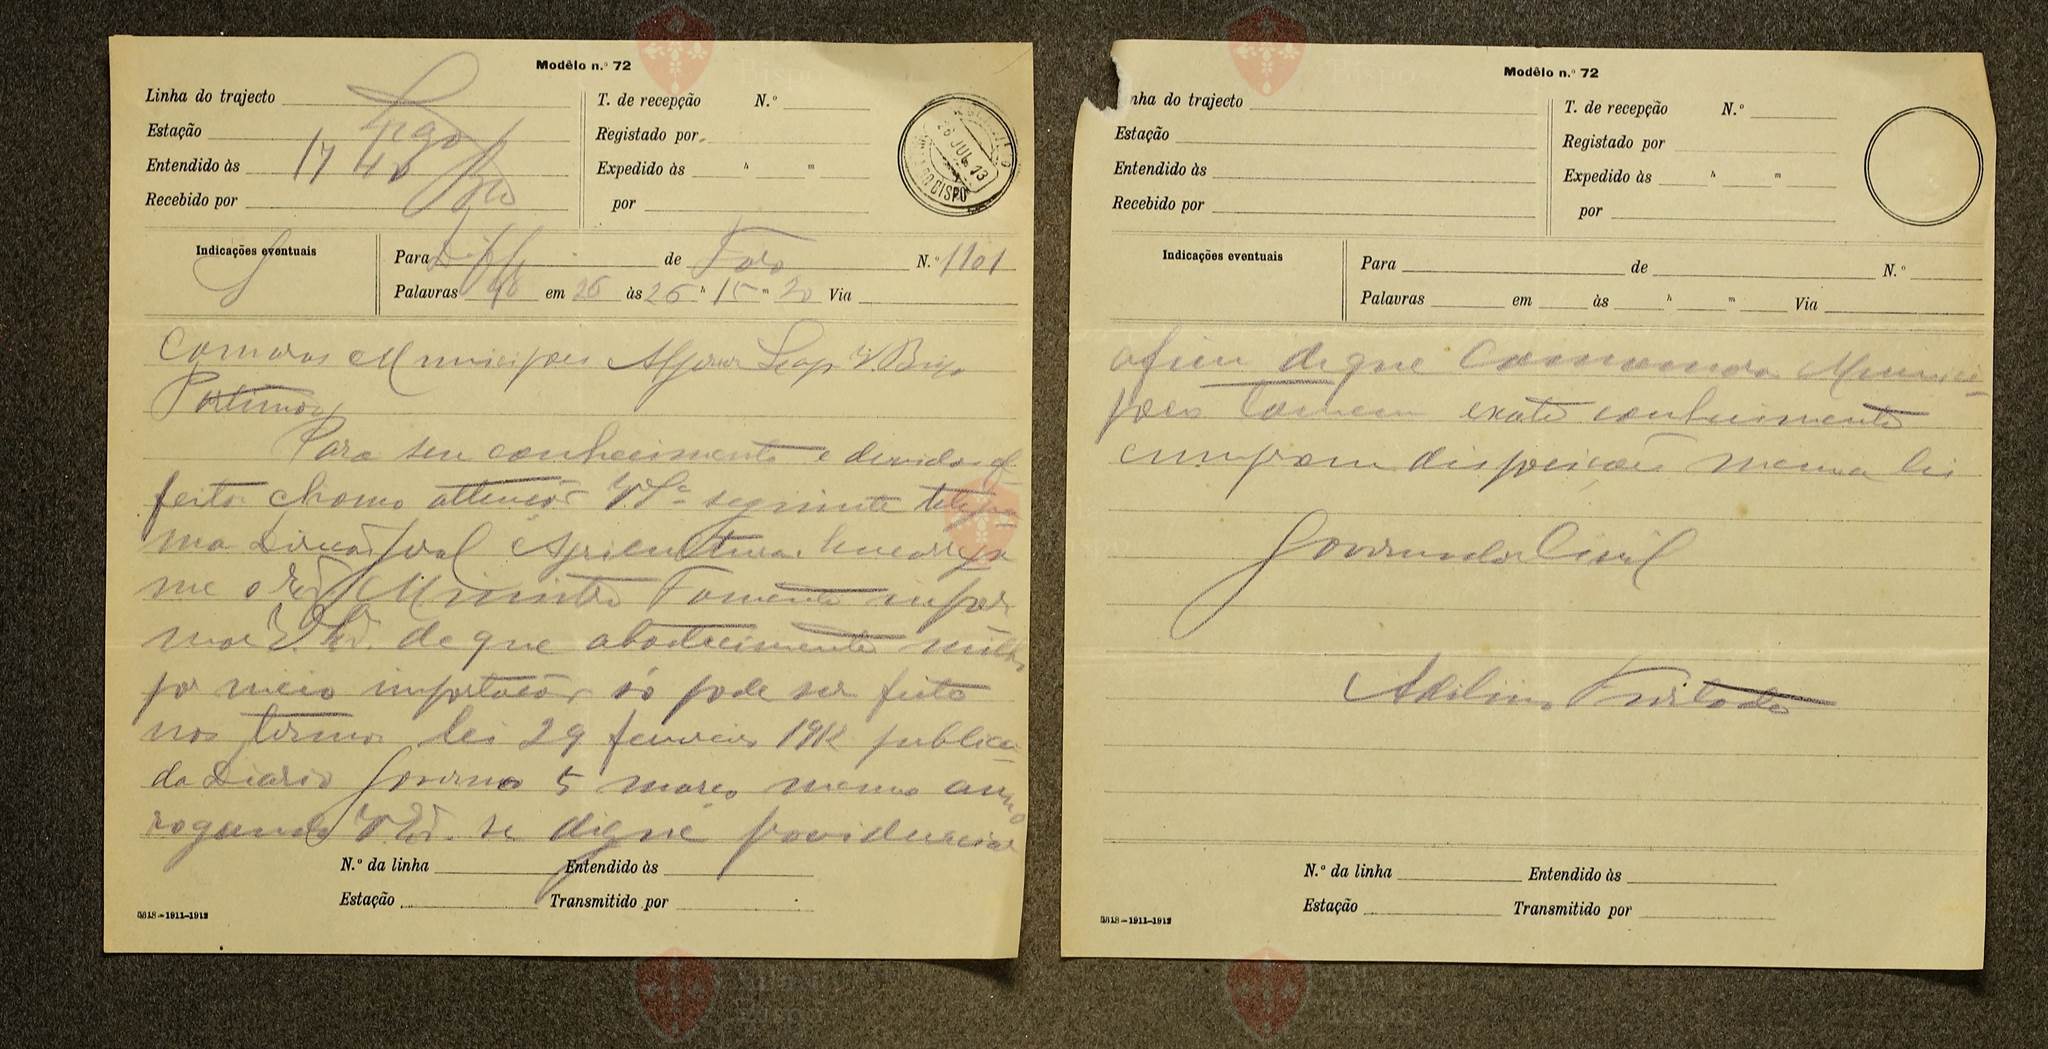 Modêlo n.º 72
Linha do trajecto
Estação
Entendido às 17 40
Recebido por
T. de recepção N.º
Registado por
Expedido às h m
por
26 JUL 13
BISPO
Indicações eventuais
S
Para de Faro N.º 1101
Palavras em 26 às 26 h 15 m 20 Via
Camaras Municipaes Aljezur Lagos V. Bispo
Portimão
Para seu conhecimento e devidos ef
feitos chamo attenção V. Sª seguinte telegra
ma Direcção Geral Agricultura. Encarrega
me o Exº Ministro Fomento infor
mar V. Exª. de que abastecimento milho
por meio importação só pode ser feito
nos termos lei 29 fevereiro 1912 publica
da Diario Governo 5 março mesmo anno
rogando V. Exª. se digne providenciar
N.º da linha Entendido às
Estação Transmitido por
5818-1911-1912
Modêlo n.º 72
nha do trajecto
Estação
Entendido às
Recebido por
T. de recepção N.º
Registado por
Expedido às h m
por
Indicações eventuais
Para de N.º
Palavras em às h m Via
afim de que Camaras Munici
paes tomem exato conhecimento
cumpram disposições mesma lei
Governador Civil
Adelino Furtado
N.º da linha Entendido às
Estação Transmitido por
5818-1911-1912
Bispo
Bispo
Vila do
Bispo
Vila do
Bispo